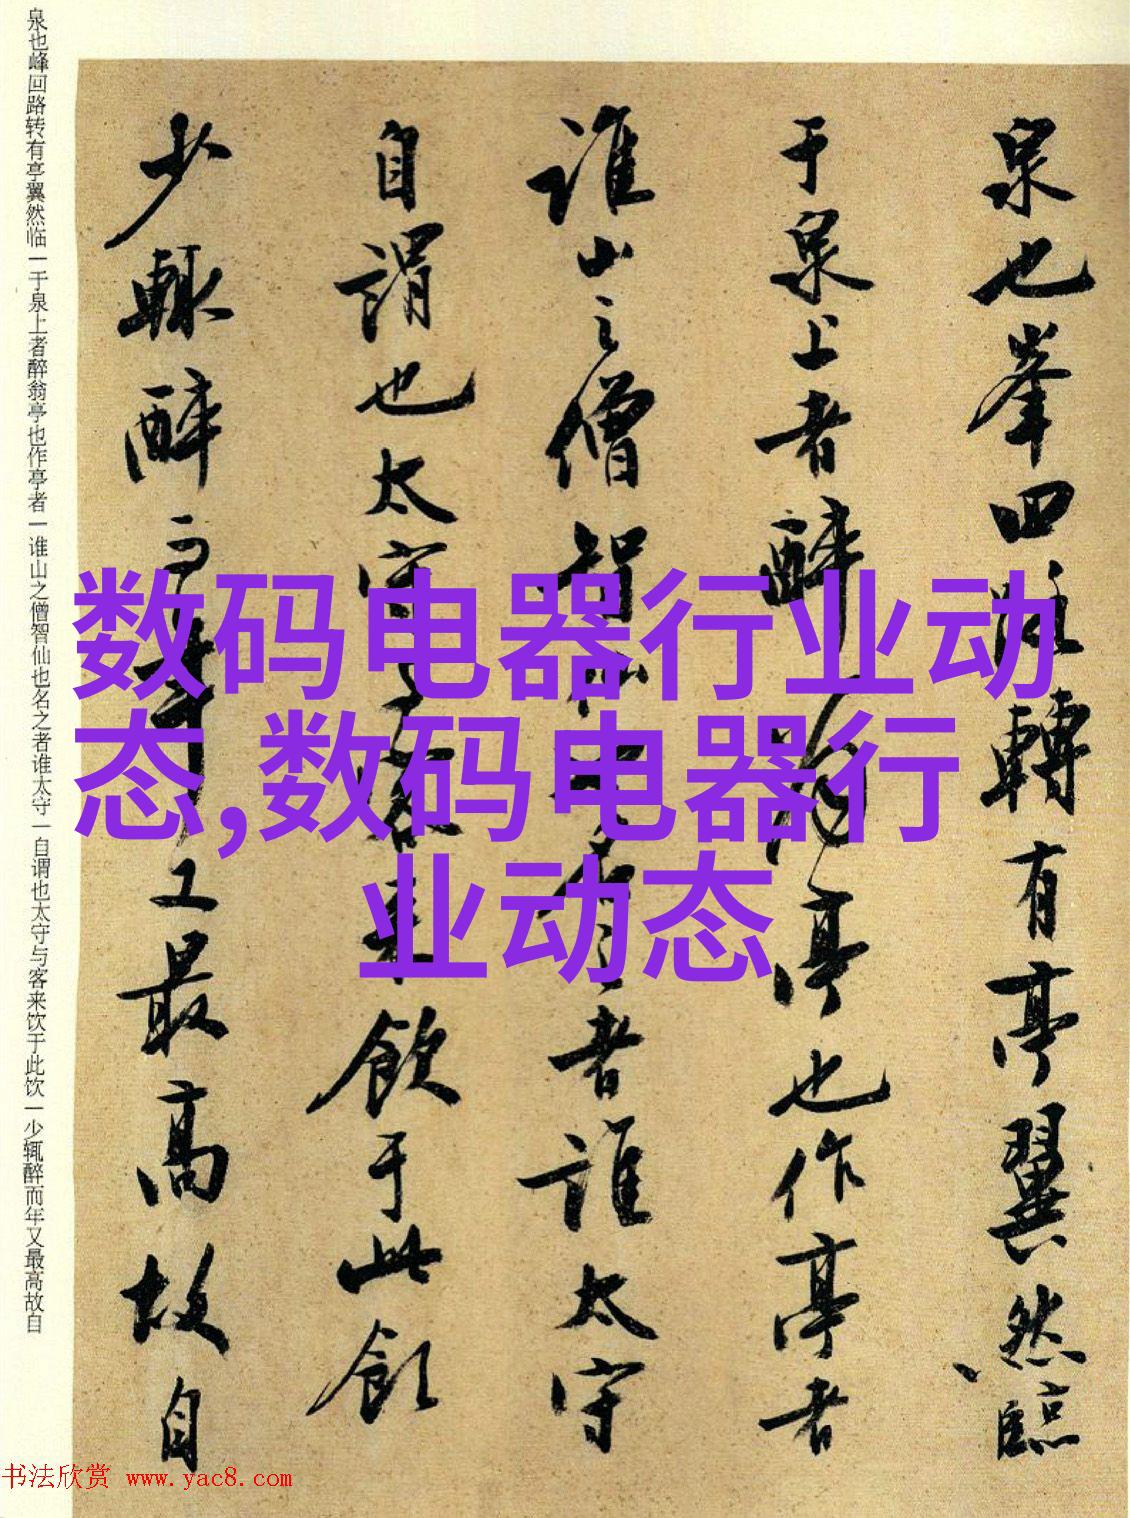 泉也峯回路轉有亭翼然臨
于泉上者醉翁亭也作亭者
誰山之僧智仙也名之者誰太守
自謂也太守與客來飲于此飲
少輒醉而年又最高故自
泉也峰回路转有亭翼然临一于泉上者醉翁亭也作亭者一谁山之僧智仙也名之者谁太守一自谓也太守与客来饮于此饮一少辄醉而年又最高故自
数码电器行业动
态,数码电器行
业动态
书法欣赏 www.yac8.com